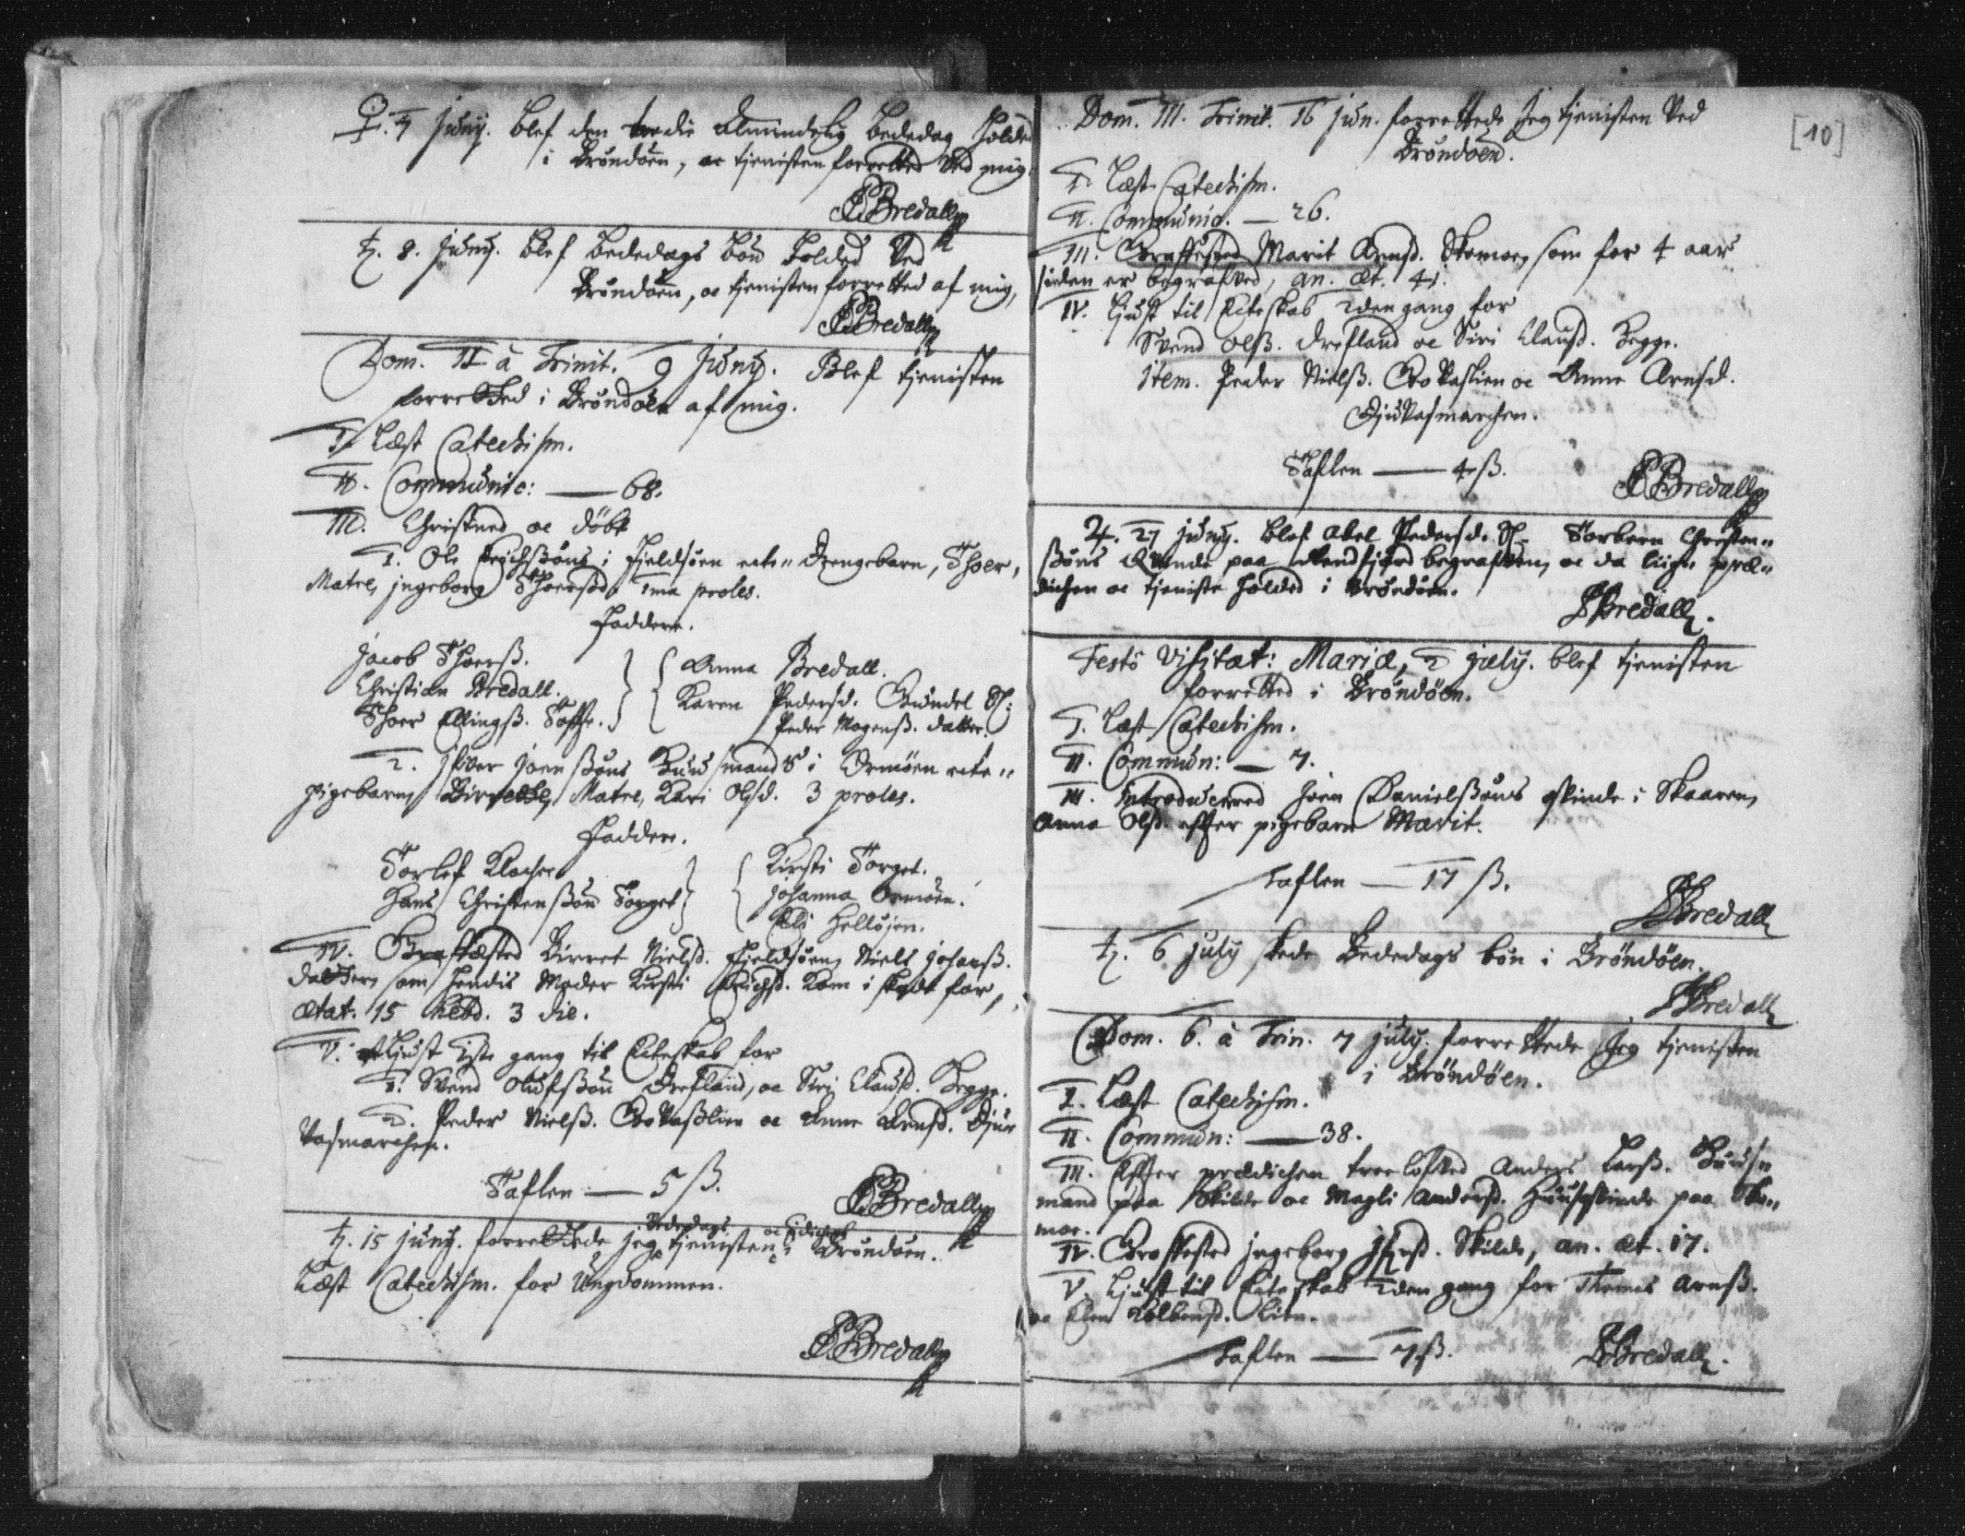 ♀. 7 Juny. blef den tredie Almindelig Bededag holden
i Brøndøen, oc tienisten forretted ved mig.
PBredall
♄. 8. Juny. blef Bededags bøn holded ved
Brøndøen, oc tienisten forretted af mig,
PBredall
Dom. II à Trinit. 9 Juny. Blef tienisten
forretted i Brøndøen af mig.
I. Læst Catechism.
II. Communic: — 68.
III. Christned oc døbt
1. Ole Erichssøns i Fieldsøen ecte= Drengebarn, Thoer,
Matre, Jngeborg Thoersd. 1ma proles.
Faddere.
Jacob Thoerss.
Christian Bredall.
Thoer Ellingss. Tofte.
Anna Bredall.
Karen Pedersd. Gundel
Peder Mogenss. datter.
2. Joen ssøns Huusmands i Ormøen ecte=
pigebarn, Birrette, Matre, Kari Olsd. 3 proles.
Faddere.
Torlef
Hans Christenssøn Torget
Kirsti Torget.
Johanna Ormøen.
Eli
IV. Graffæsted Birret Nielsd. Fieldsøen, Niels Johanss.
datter, som hendis Moder Kirsti Erichsd. kom i skade for,
ætat. 15 hebd. 3 die.
V. Liust 1ste gang til Ecteskab for
1. Svend Olufssøn Drefland, oc Siri Clausd. Begge.
2. Peder Nielss. oc Anne Arnsd. Diu=
vasmarchen.
Taflen — 5 ß.
PBredall
♄. 15 Juny. forrettede jeg Bededags tienisten i Brøndøen.
Læst Catechism. for Ungdommen.
PBredall
[10]
Dom. III. Trinit. 16 Jun. forrettede Jeg tienisten ved
Brøndøen.
I. Læst Catechism.
II. Communic. — 26.
III. Graffested Marit Arnsd. Skomoe, som for 4 aar
siden er begrafved, an. æt. 41.
IV. Liust til Ecteskab 2den gang for
Svend Olss. Drefland oc Siri Clausd. Begge.
item. Peder Nielss. oc Anne Arnsd.
Diuvasmarchen.
Taflen — 4 ß.
PBredall
♃. 27 Juny. blef Abel Pedersd. Torbern Christen=
ssøns Qvinde paa begrafven, oc da liig= præ=
dichen oc tieniste holded i Brøndøen.
PBredall.
Festo Visitat: Mariæ, 2 July. blef tienisten
forretted i Brøndøen.
I. Læst Catechism.
II. Commun: — 7.
III. Introducered Joen Danielssøns qvinde i Skaaren,
Anna Olsd. efter pigebarn Marit.
Taflen — 17 ß.
PBredall
♄. 6 July skede Bededags bøn i Brøndøen.
PBredall
Dom. 6. à Trin. 7 July. forrettede Jeg tienisten
i Brøndøen.
I. Læst Catechism.
II. Commun: — 38.
III. Efter prædichen troelofved Anders Larss. Huus=
mand paa Skilde oc Magli Andersd. Huusqvinde paa Sko=
moe.
IV. Graffested Jngeborg Skilde, an. æt. 17.
V. Liust til Ecteskab 2den gang for Thomes Arnss.
oc Elen Lien.
Taflen — 7 ß.
PBredall.